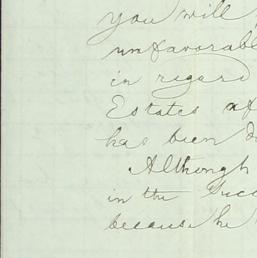 you will
unfavorabl
in regard
Estates of
has been d
Although
in the Succ
because he